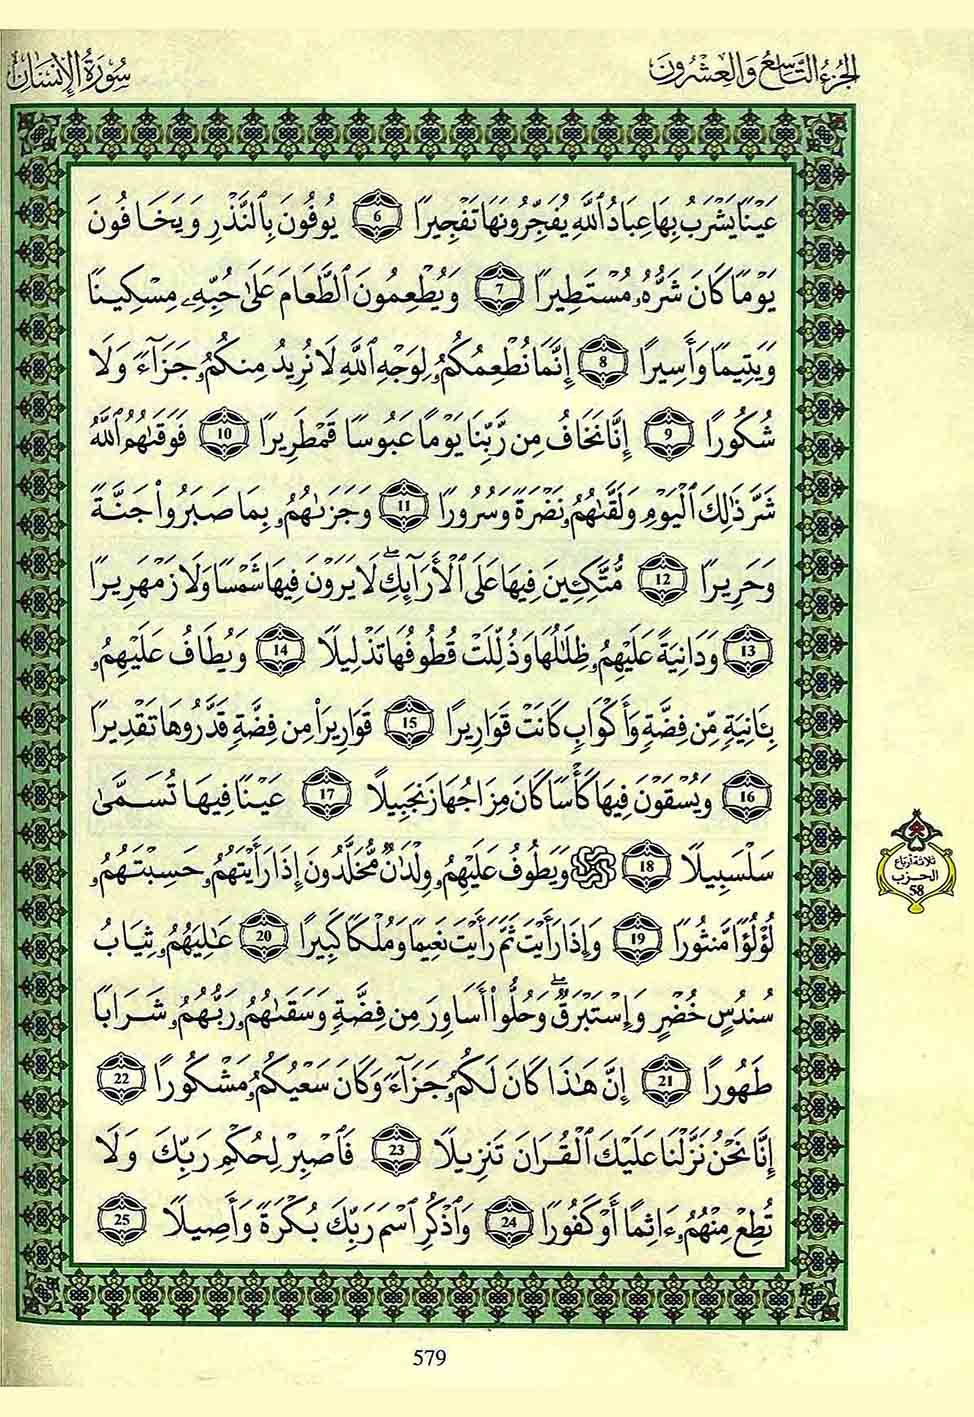 الجزء التاسع والعشرون
سورة الإنسان
عَيْنًا يَشْرَبُ بِهَا عِبَادُ اُللَّهِ يُفَجِّرُونَهَا تَفْجِيرًا 6 يُوفُونَ بِالنَّذْرِ وَيَخَافُونَ
يَوْمًا كَانَ شَرُّهُۥ مُسْتَطِيرًا 7 وَيُطْعِمُونَ اَلطَّعَامَ عَلَىٰ حُبِّهِۦ مِسْكِينًا
وَيَتِيمًا وَأَسِيرًا 8 إِنَّمَا نُطْعِمُكُمُۥ لِوَجْهِ اِللَّهِ لَا نُرِيدُ مِنكُمُۥ جَزَآءً وَلَا
شُكُورًا 9 إِنَّا نَخَافُ مِن رَّبِّنَا يَوْمًا عَبُوسًا قَمْطَرِيرًا 10 فَوَقَىٰهُمُ اُللَّهُ
شَرَّ ذَٰلِكَ اَلْيَوْمِ وَلَقَّىٰهُمُۥ نَضْرَةً وَسُرُورًا 11 وَجَزَىٰهُمُۥ بِمَا صَبَرُواْ جَنَّةً
وَحَرِيرًا 12 مُّتَّكِـِٔينَ فِيهَا عَلَى اَلْأَرَآئِكِۖ لَا يَرَوْنَ فِيهَا شَمْسًا وَلَا زَمْهَرِيرًا
13 وَدَانِيَةً عَلَيْهِمُۥ ظِلَٰلُهَا وَذُلِّلَتْ قُطُوفُهَا تَذْلِيلًا 14 وَيُطَافُ عَلَيْهِمُۥ
بِـَٔانِيَةٍ مِّن فِضَّةٍ وَأَكْوَابٍ كَانَتْ قَوَارِيرًا 15 قَوَارِيرَاْ مِن فِضَّةٍ قَدَّرُوهَا تَقْدِيرًا
16 وَيُسْقَوْنَ فِيهَا كَأْسًا كَانَ مِزَاجُهَا زَنجَبِيلًا 17 عَيْنًا فِيهَا تُسَمَّىٰ
سَلْسَبِيلًا 18 وَيَطُوفُ عَلَيْهِمُۥ وِلْدَٰنٌ مُّخَلَّدُونَ إِذَا رَأَيْتَهُمُۥ حَسِبْتَهُمُۥ
لُؤْلُؤًا مَّنثُورًا 19 وَإِذَا رَأَيْتَ ثَمَّ رَأَيْتَ نَعِيمًا وَمُلْكًا كَبِيرًا 20 عَٰلِيَهُمُۥ ثِيَابُ
سُندُسٍ خُضْرٍ وَإِسْتَبْرَقٌۖ وَحُلُّواْ أَسَاوِرَ مِن فِضَّةٍ وَسَقَىٰهُمُۥ رَبُّهُمُۥ شَرَابًا
طَهُورًا 21 إِنَّ هَٰذَا كَانَ لَكُمُۥ جَزَآءً وَكَانَ سَعْيُكُمُۥ مَشْكُورًا 22
إِنَّا نَحْنُ نَزَّلْنَا عَلَيْكَ اَلْقُرَانَ تَنزِيلًا 23 فَاصْبِرْ لِحُكْمِ رَبِّكَ وَلَا
تُطِعْ مِنْهُمُۥ ءَاثِمًا أَوْ كَفُورًا 24 وَاذْكُرِ اِسْمَ رَبِّكَ بُكْرَةً وَأَصِيلًا 25
ثلاثة أرباع
الحزب
58
579